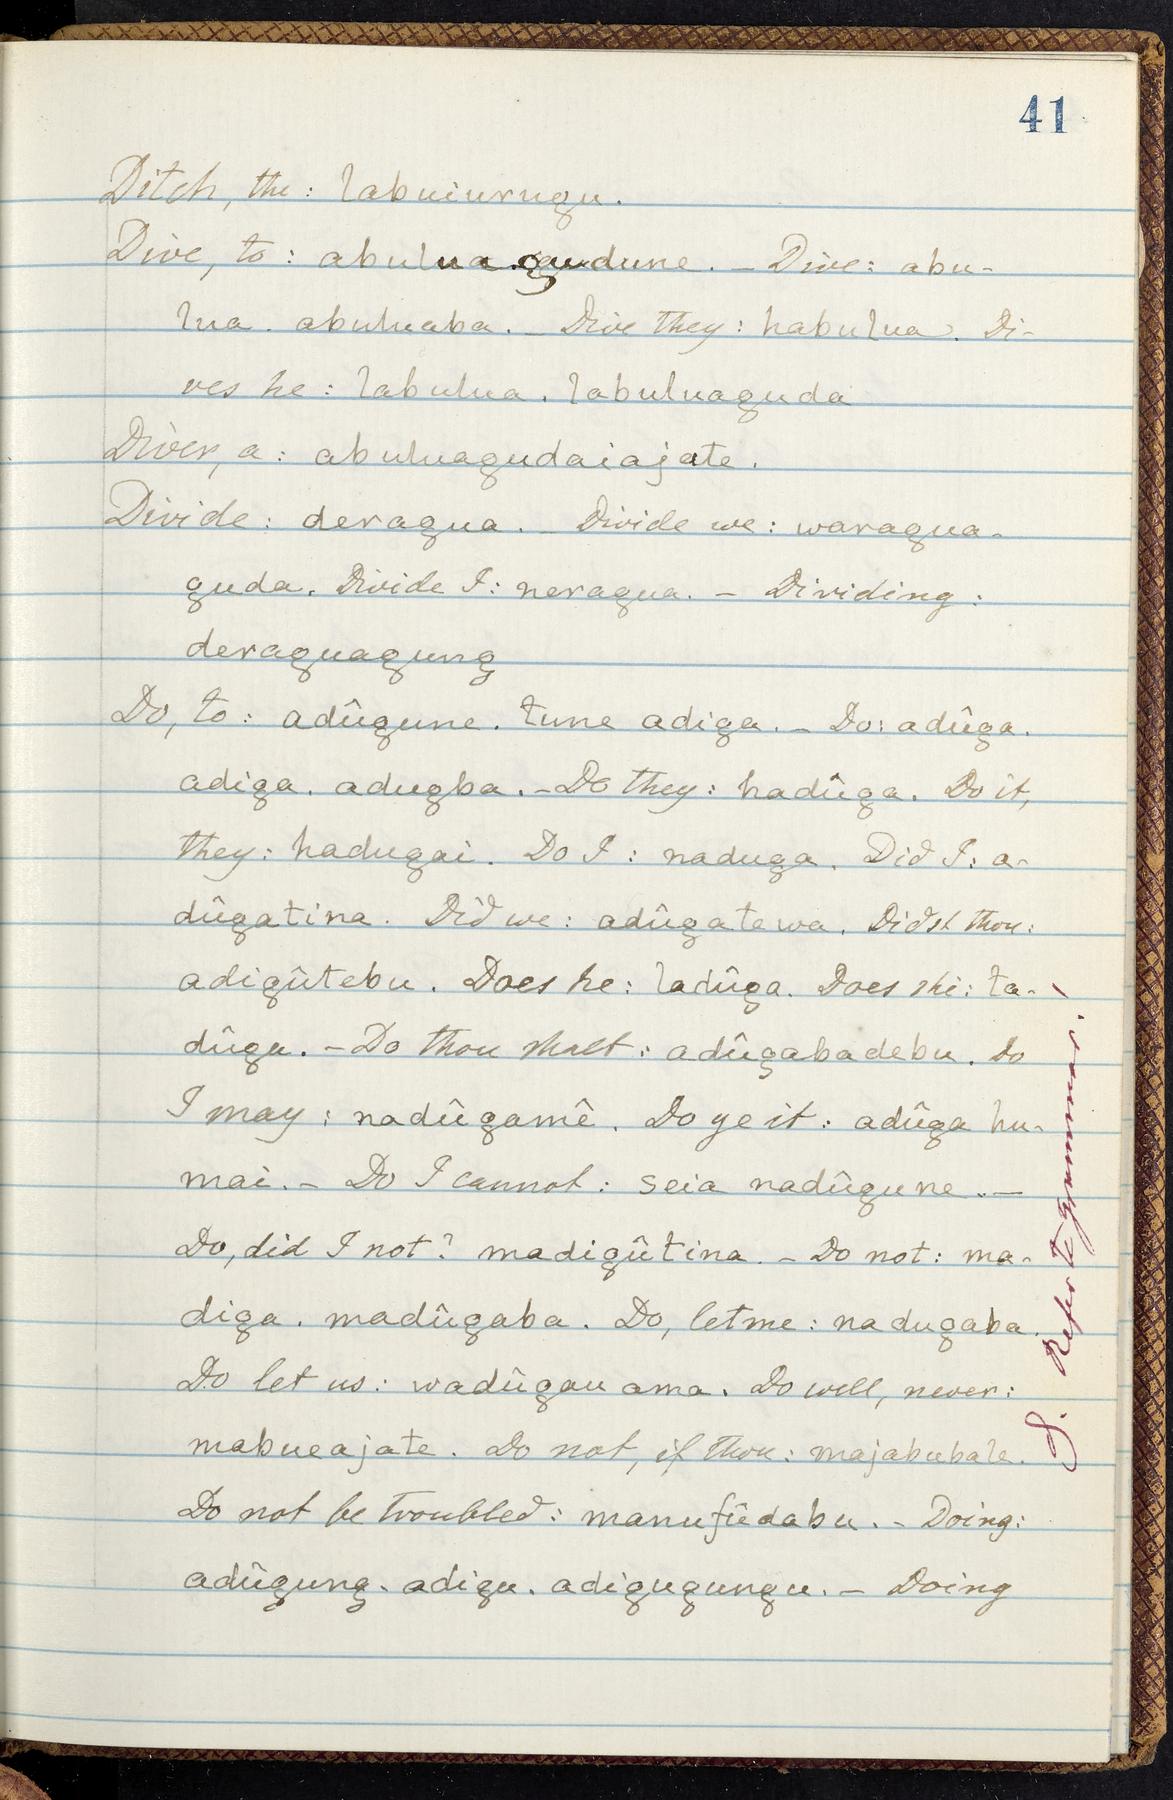 41
Ditch, the: labuiurugu.
Dive, to: abulua gudune. — Dive: abu-
lua. abuluaba. — Dive they: habulua. Di-
ves he: labulua. labuluaguda
Diver, a: abuluagudaiajate.
Divide: deragua. — Divide we: waragua-
guda. Divide I: neragua. — Dividing:
deraguagung
Do, to: adûgune. tune adiga. — Do: adûga.
adiga. adugba. — Do they: hadûga. Do it,
they: hadugai. Do I: naduga. Did I: a-
dûgatina. Did we: adûgatewa. Didst thou:
adigûtebu. Does he: ladûga. Does she: ta-
dûga. — Do thou shalt: adûgabadebu. Do
I may: nadûgamê. Do ye it: adûga hu-
mai. — Do I cannot: seia nadûgune. —
Do, did I not? madigûtina. — Do not: ma-
diga. madûgaba. Do, let me: nadugaba.
Do let us: wadûgau ama. Do well, never:
mabueajate. Do not, if thou: majabubale.
Do not be troubled: manufûdabu. — Doing:
adûgung. adigu. adigugungu. — Doing
S. Refer to grammar!